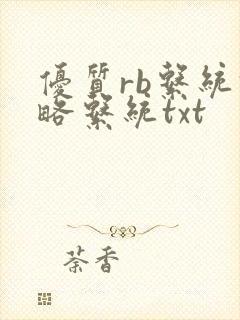 優質rb繫統
略繫統txt
荼香